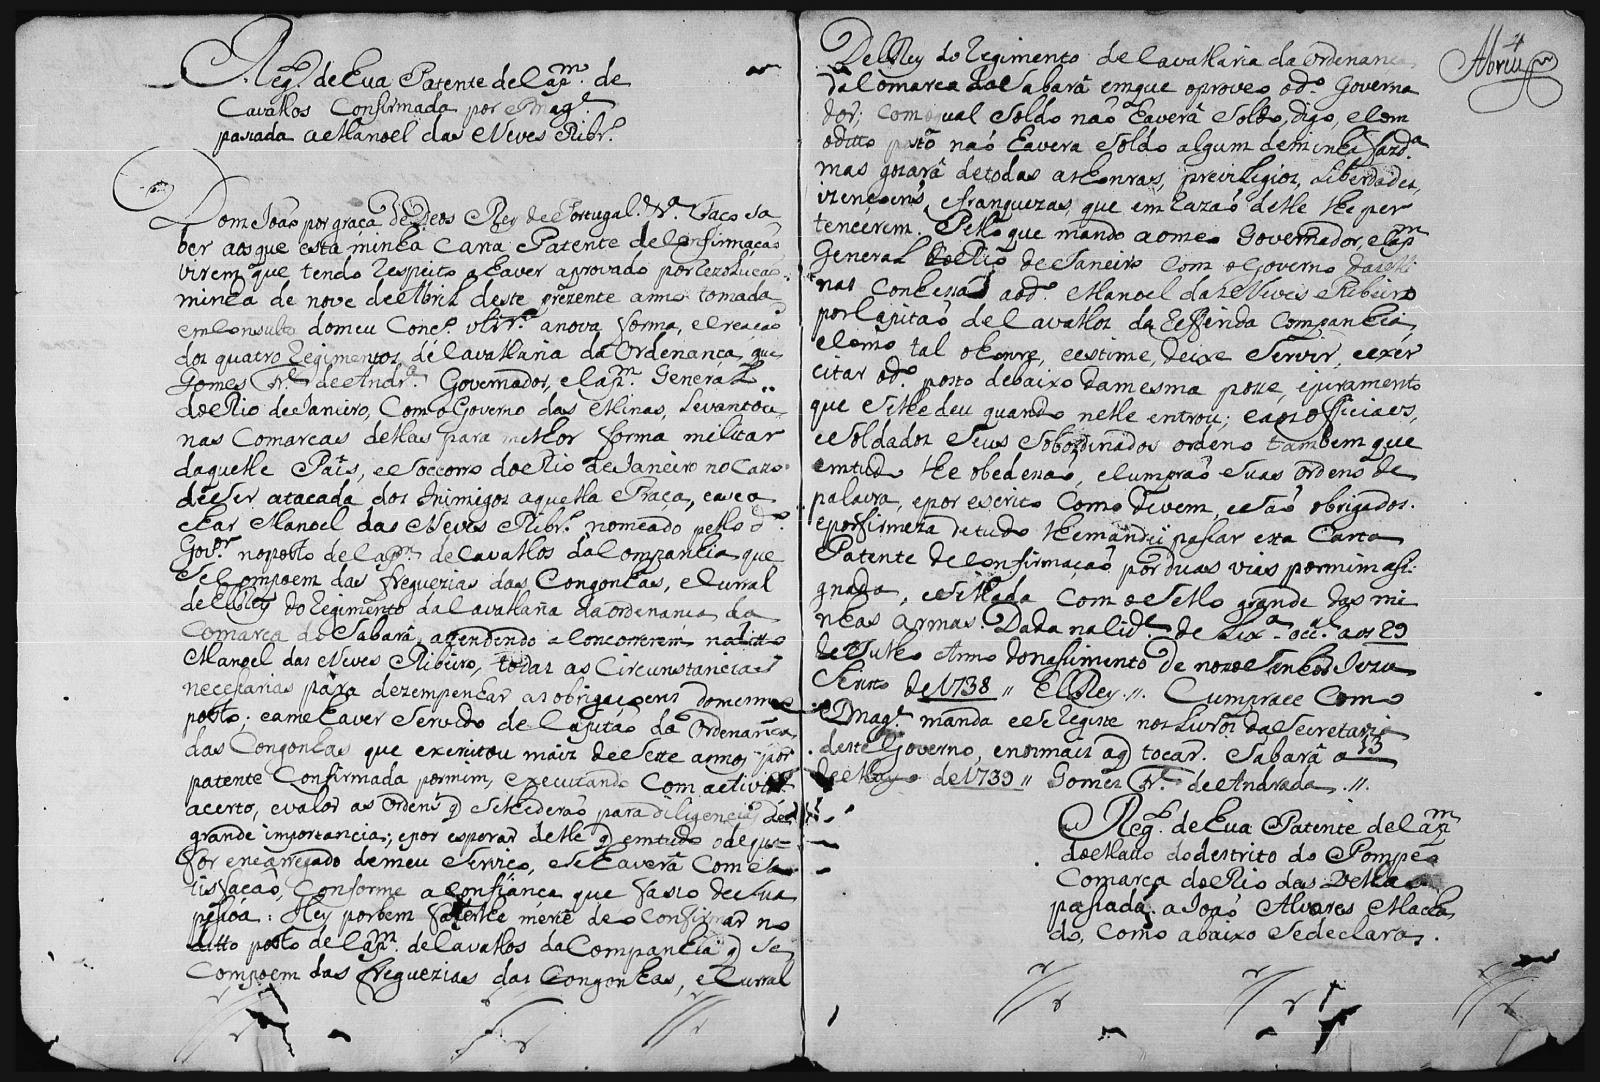 Reg.º de huã Patente de Cap.m de
Cavallos Confirmada por S Mag.e
passada a Manoel das Neves Ribr.º
Dom João por graça de Deos Rey de Portugal. &.ª Faço sa
ber aos que esta minha Carta Patente de Confirmação
virem que tendo respeito a haver aprovado por rezolução
minha de nove de Abril deste prezente anno tomada
em Consulta do meu Conc.º ultr.º a nova forma, e creação
dos quatro regimentos de Cavallaria da Ordenança que
Gomes Fr.e de Andr.ª Governador, e Cap.m General
do Rio de Janeiro, Com o Governo das Minas, Levantou
nas Comarcas dellas para melhor forma militar
daquelle Pais, e soccorro do Rio de Janeiro no cazo
de ser atacada dos Inimigos aquella Praça, e a se a
char Manoel das Neves Ribr.º nomeado pello d.º
Gov.or no posto de Cap.m de Cavallos da Companhia que
se Compoem das freguezias das Congonhas, e Curral
del Rey do regimento da Cavallaria da ordenança da
Comarca do Sabará, attendendo a Concorrerem no ditto
Manoel das Neves Ribeiro, todas as Circunstancias
necessarias para dezempenhar as obrigaçoens do mesmo
posto; e a me haver servido de Capitão da Ordenança
das Congonhas que exercitou mais de sette annos por
patente Confirmada por mim, executando Com actividade
acerto, e valor as ordens q se lhe derão para diligencias de
grande importancia; e por esperar delle q em tudo o de que
for encarregado de meu serviço, se haverá Com sa
tisfação, Conforme a confiança que faço de sua
pessoa: Hey por bem fazerlhe mercê de o Confirmar no
ditto posto de Cap.m de Cavallos da Companhia q se
Compoem das freguezias das Congonhas, e Curral
Abreu
Del Rey do regimento de Cavallaria da ordenança
da Comarca do Sabará em que o proveo o d.º Governa
dor; Com o qual soldo não haverá soldo, digo, e Com
o ditto posto não haverá soldo algum de minha fazd.ª
mas gozará de todas as honras, previlegios, Liberdades,
izençoens, e franquezas, que em razão delle lhe per
tencerem. Pello que mando ao meo Governador, e Cap.m
General do Rio de Janeiro Com o Governo das Mi
nas Conheça ao d.º Manoel das Neves Ribeiro
por Capitão de Cavallos da referida Companhia,
e Como tal o honre, e estime, deixe servir, e exer
citar o d.º posto debaixo da mesma posse, e juramento
que se lhe deu quando nelle entrou; e aos officiaes,
e soldados seus sobordinados ordeno tambem que
em tudo lhe obedeção, e cumprão suas ordens de
palavra, e por escrito Como devem, e são obrigados.
e por firmeza de tudo lhe mandei passar esta Carta
Patente de Confirmação por duas vias por mim asi
gnada, e sellada Com o sello grande das mi
nhas armas. Dada na Cid.e de Lix.ª occ.al aos 29
de Julho Anno do nascimento de nosso senhor Jezu
Christo de 1738 // El Rey // Cumprace Como
S Mag.e manda e se registe nos Livros da Secretaria
deste Governo, e nos mais a q tocar. Sabará a 13
de Mayo de 1739 // Gomes Fr.e de Andrada //
Reg.º de huã Patente de Cap.m
do Matto do destrito do Pompeo
Comarca do Rio das Velhas
passada a João Alvares Macha
do, Como abaixo se declara.